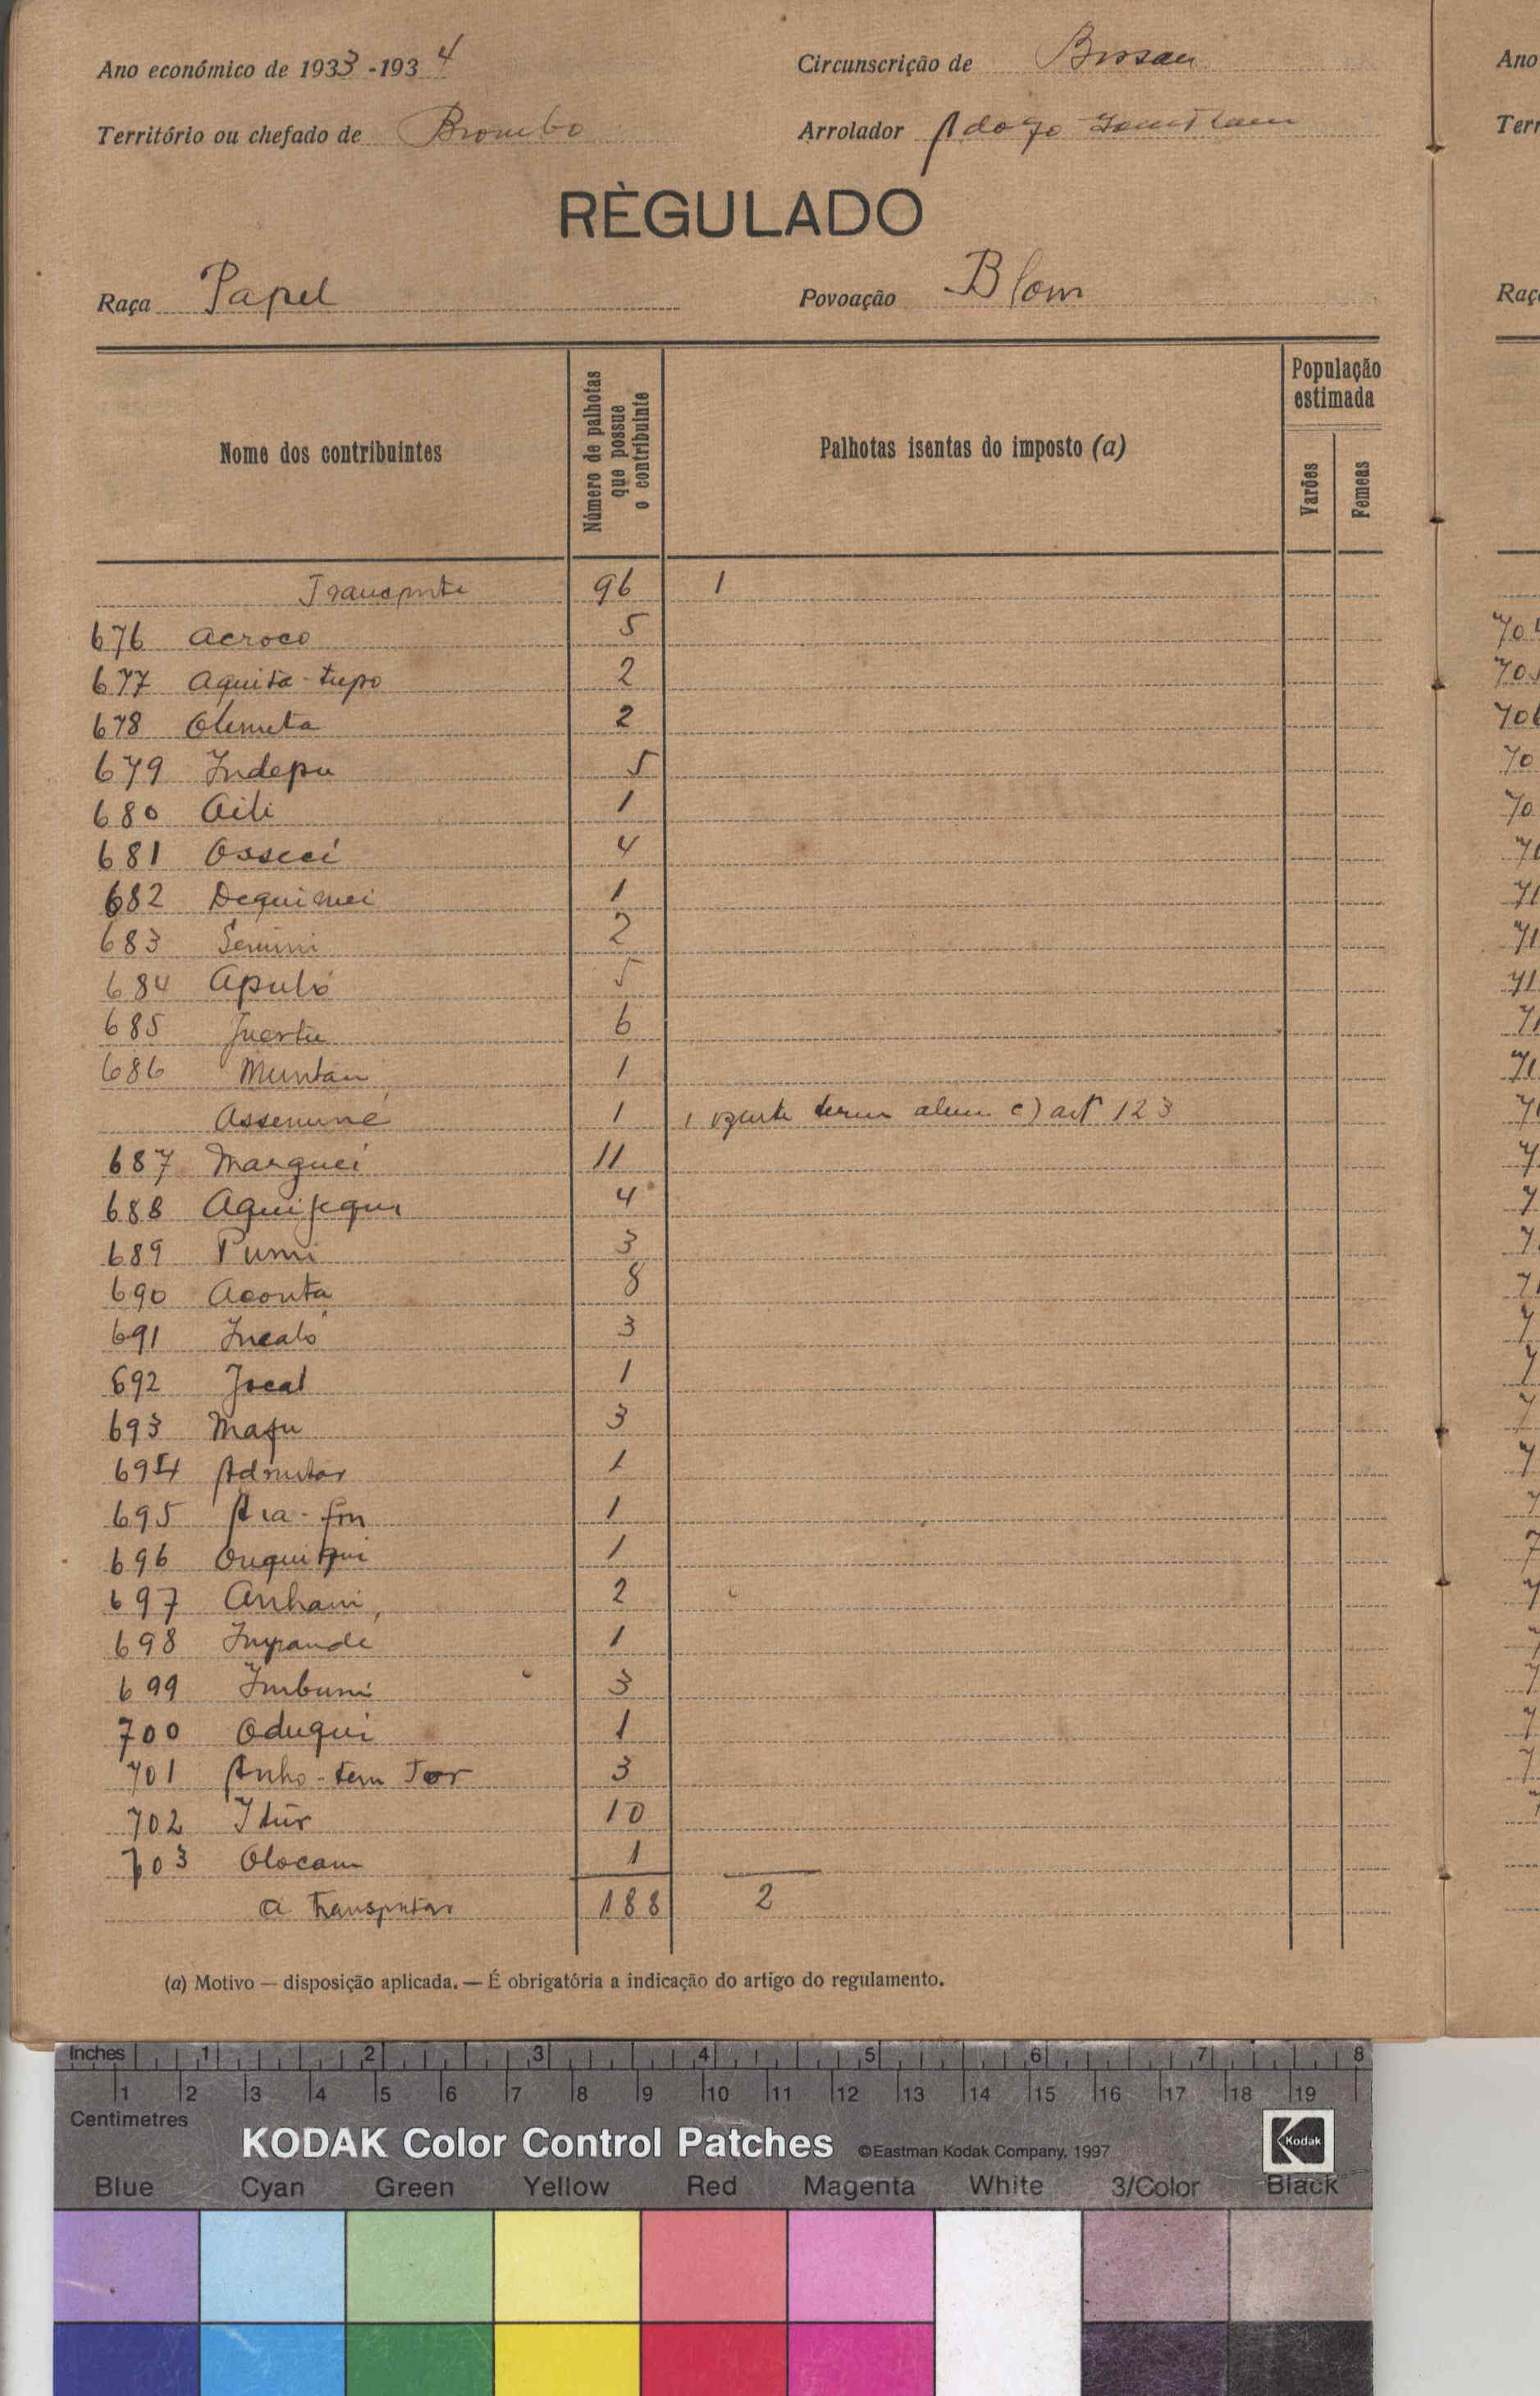 Ano económico de 1933-1934
Circunscrição de Bissau
Território ou chefado de Biombo
Arrolador Adogo
RÈGULADO
Raça Papel
Povoação Blom
Nome dos contribuintes
Número de palhotas que possue o contribuinte
Palhotas isentas do imposto (a)
População estimada
Varões
Femeas
Transporte 96 1
676 Acroco 5
677 Aquita-tupo 2
678 Olimeta 2
679 Indepu 5
680 Aili 1
681 Osseci 4
682 Dequimei 1
683 Semini 2
684 Apuló 5
685 6
686 Muntan 1
Assenuné 1 1 isenta alin. c) artº 123
687 Marguei 11
688 4
689 Pumi 3
690 Aconta 8
691 Incaló 3
692 Jocal 1
693 Mafu 3
694 1
695 1
696 1
697 Anhani 2
698 Impandé 1
699 Imbumi 3
700 Oduqui 1
701 Anho-tem Tor 3
702 Itur 10
703 Olocam 1
A transportar 188 2
(a) Motivo — disposição aplicada. — É obrigatória a indicação do artigo do regulamento.
Ano
Terr
Raç
Inches 1 2 3 4 5 6 7 8
1 2 3 4 5 6 7 8 9 10 11 12 13 14 15 16 17 18 19
Centimetres
KODAK Color Control Patches ©Eastman Kodak Company, 1997 Kodak
Blue Cyan Green Yellow Red Magenta White 3/Color Black